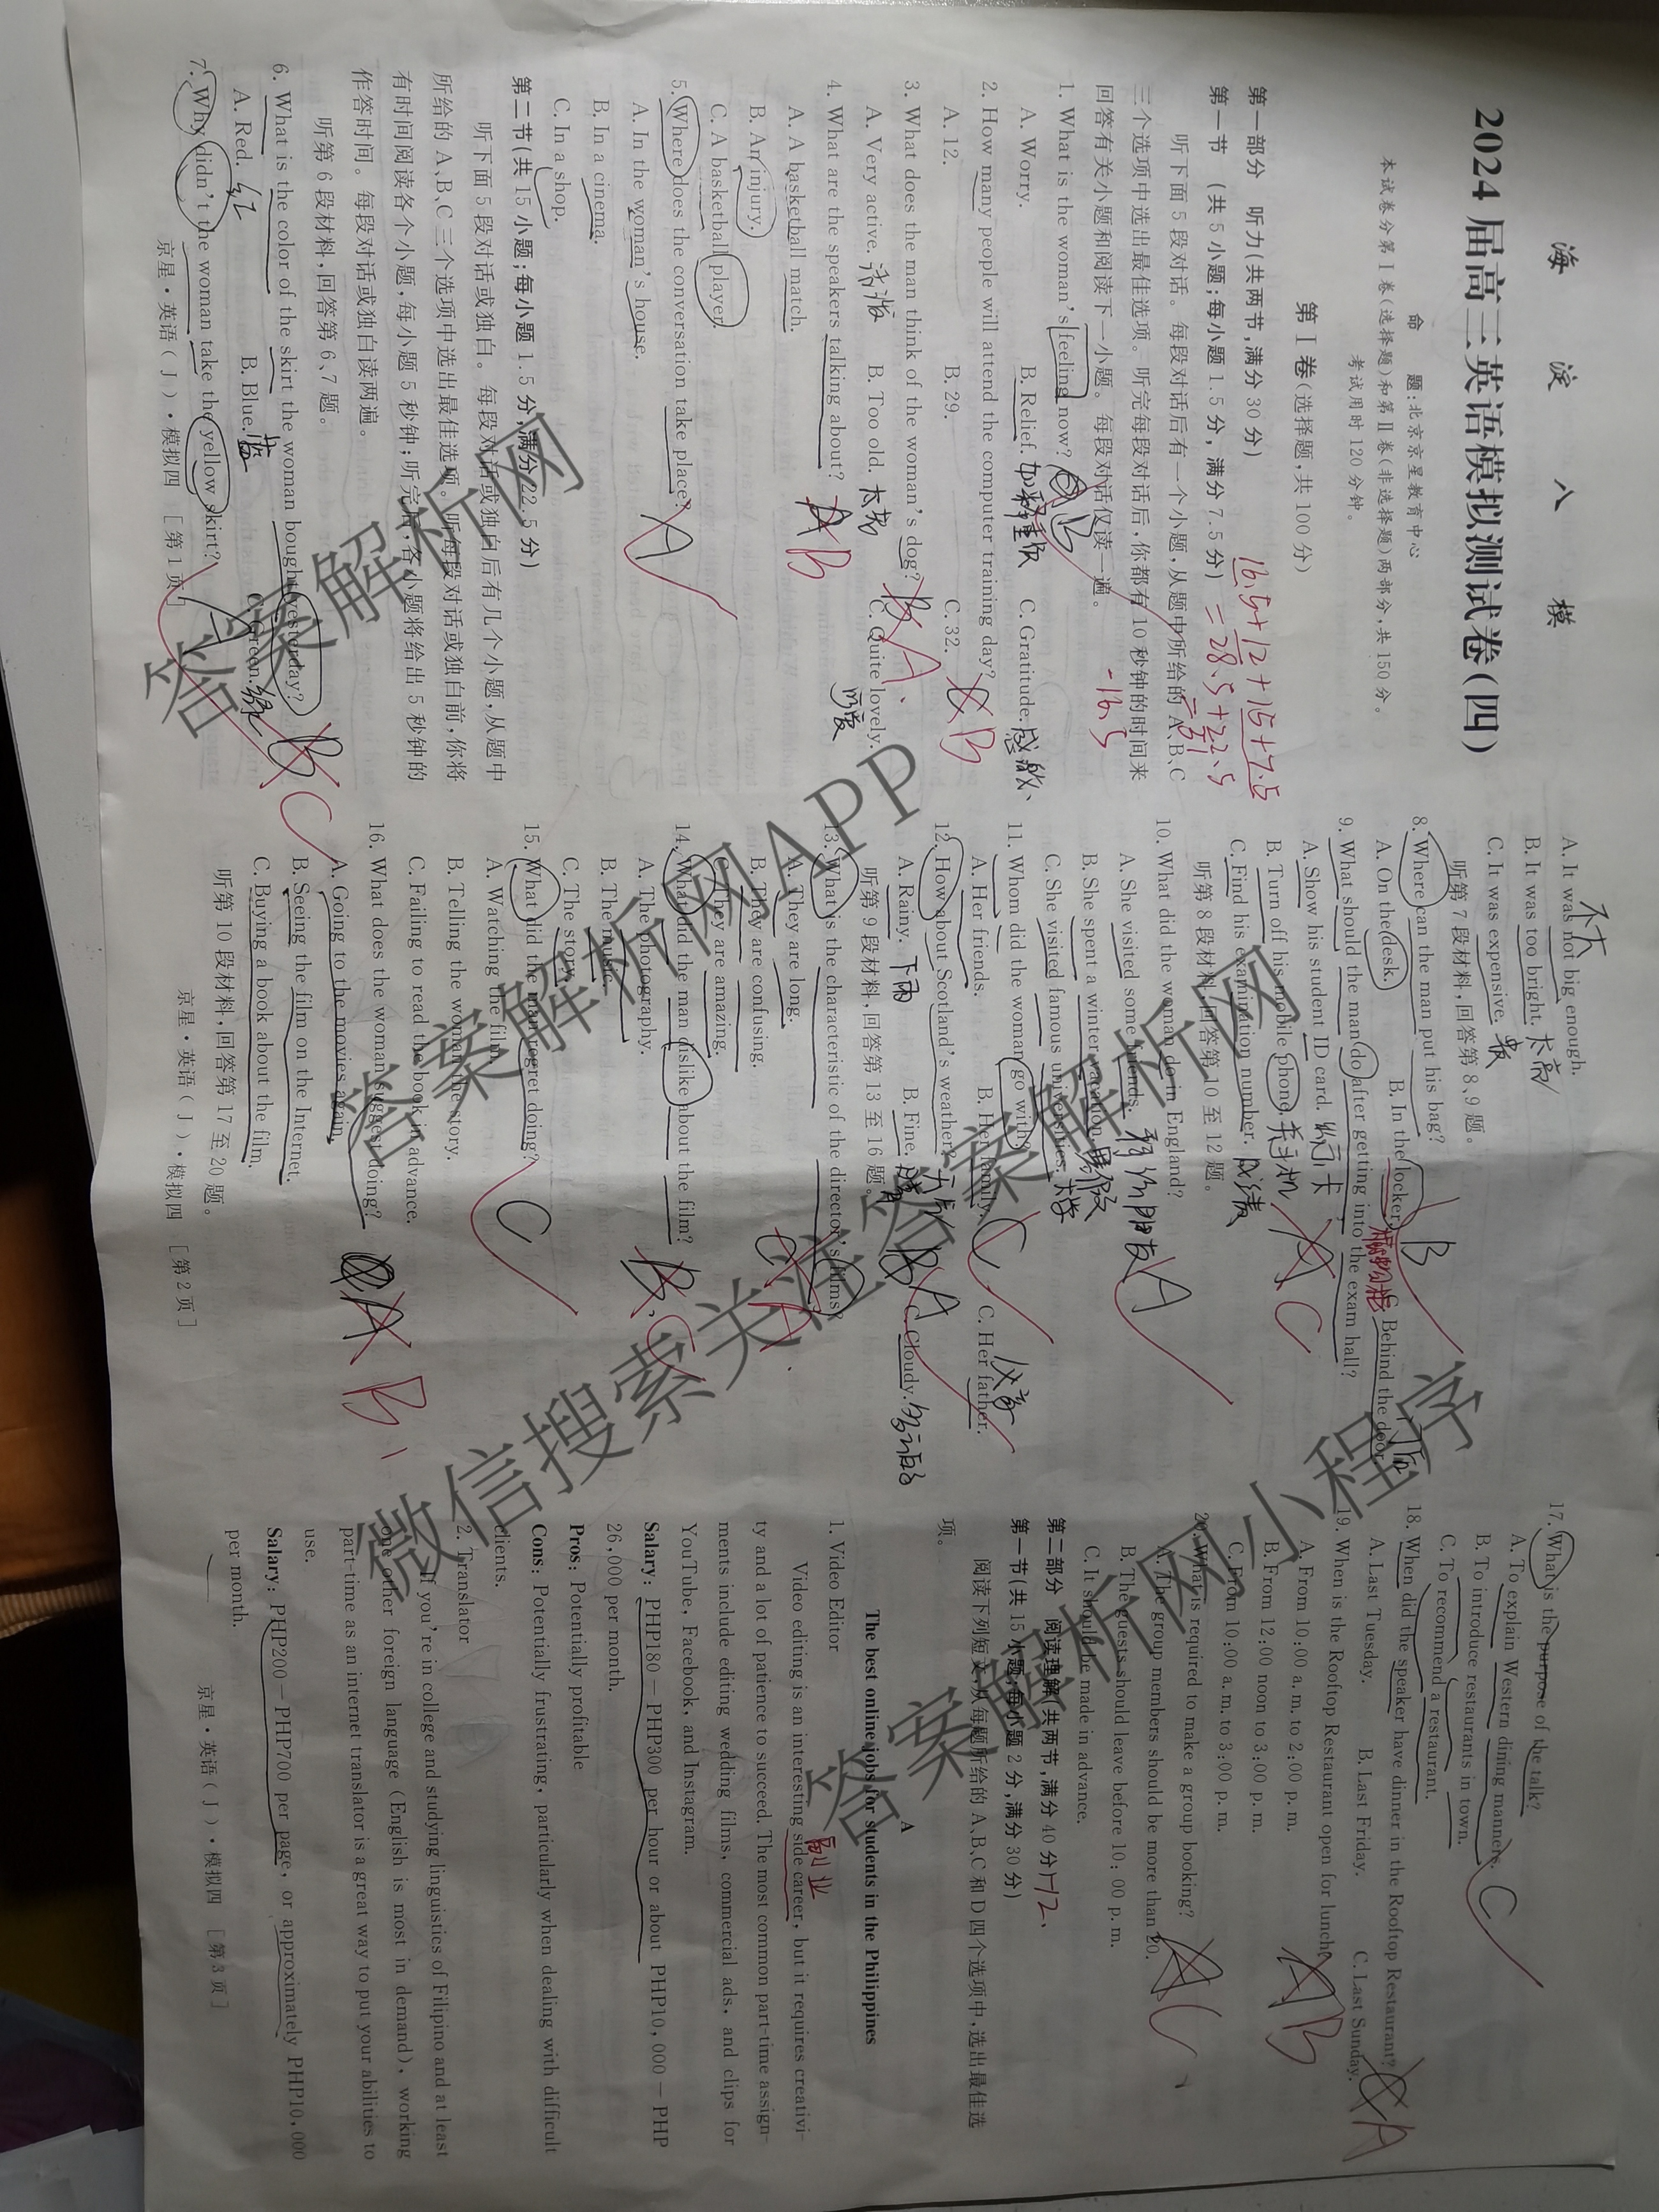 海淀八模
2024届高三英语模拟测试卷(四)
命 题:北京京星教育中心
本试卷分第Ⅰ卷(选择题)和第Ⅱ卷(非选择题)两部分,共150分。
考试用时120分钟。
第Ⅰ卷(选择题,共100分)
第一部分 听力(共两节,满分30分)
16.5+12+15+7.5
第一节 (共5小题;每小题1.5分,满分7.5分)
=28.5+22.5
=51
听下面5段对话。每段对话后有一个小题,从题中所给的A、B、C
三个选项中选出最佳选项。听完每段对话后,你都有10秒钟的时间来
回答有关小题和阅读下一小题。每段对话仅读一遍。
-16.5
1. What is the woman's feeling now? B
A. Worry. B. Relief. C. Gratitude. 感激、
2. How many people will attend the computer training day? B
A. 12. B. 29. C. 32.
3. What does the man think of the woman's dog? B A、
A. Very active. 活泼 B. Too old. 太老 C. Quite lovely. 可爱
4. What are the speakers talking about? A B
A. A basketball match.
B. An injury.
C. A basketball player.
5. Where does the conversation take place? A
A. In the woman's house.
B. In a cinema.
C. In a shop.
第二节(共15小题;每小题1.5分,满分22.5分)
听下面5段对话或独白。每段对话或独白后有几个小题,从题中
所给的A、B、C三个选项中选出最佳选项。听每段对话或独白前,你将
有时间阅读各个小题,每小题5秒钟;听完后,各小题将给出5秒钟的
作答时间。每段对话或独白读两遍。
听第6段材料,回答第6、7题。
6. What is the color of the skirt the woman bought yesterday? B C
A. Red. 红 B. Blue. 蓝 C. Green. 绿
7. Why didn't the woman take the yellow skirt? A
京星·英语(J)·模拟四 [第1页]
A. It was not big enough. 不大
B. It was too bright. 太亮
C. It was expensive. 贵
听第7段材料,回答第8、9题。
8. Where can the man put his bag? B
A. On the desk. B. In the locker. 储物柜 C. Behind the door. 门后
9. What should the man do after getting into the exam hall?
A. Show his student ID card. A C
B. Turn off his mobile phone. 关手机
C. Find his examination number. 成绩
听第8段材料,回答第10至12题。
10. What did the woman do in England? A
A. She visited some friends. 拜访朋友
B. She spent a winter vacation. 寒假
C. She visited famous universities. 大学
11. Whom did the woman go with? C
A. Her friends. B. Her family. C. Her father. 父亲
12. How about Scotland's weather? 天气 A
A. Rainy. 下雨 B. Fine. C. Cloudy. 多云的
听第9段材料,回答第13至16题。
13. What is the characteristic of the director's films? C A
A. They are long.
B. They are confusing.
C. They are amazing.
14. What did the man dislike about the film? B C
A. The photography.
B. The music.
C. The story.
15. What did the man regret doing? C
A. Watching the film.
B. Telling the woman the story.
C. Failing to read the book in advance.
16. What does the woman suggest doing? A B
A. Going to the movies again.
B. Seeing the film on the Internet.
C. Buying a book about the film.
听第10段材料,回答第17至20题。
京星·英语(J)·模拟四 [第2页]
17. What is the purpose of the talk? C
A. To explain Western dining manners.
B. To introduce restaurants in town.
C. To recommend a restaurant.
18. When did the speaker have dinner in the Rooftop Restaurant? A
A. Last Tuesday. B. Last Friday. C. Last Sunday.
19. When is the Rooftop Restaurant open for lunch? A B
A. From 10:00 a. m. to 2:00 p. m.
B. From 12:00 noon to 3:00 p. m.
C. From 10:00 a. m. to 3:00 p. m.
20. What is required to make a group booking? A C
A. The group members should be more than 20.
B. The guests should leave before 10:00 p. m.
C. It should be made in advance.
第二部分 阅读理解(共两节,满分40分) -12、
第一节(共15小题;每小题2分,满分30分)
阅读下列短文,从每题所给的A、B、C和D四个选项中,选出最佳选
项。
A
The best online jobs for students in the Philippines
1. Video Editor
副业
Video editing is an interesting side career, but it requires creativi-
ty and a lot of patience to succeed. The most common part-time assign-
ments include editing wedding films, commercial ads, and clips for
YouTube, Facebook, and Instagram.
Salary: PHP180—PHP300 per hour or about PHP10,000—PHP
26,000 per month.
Pros: Potentially profitable
Cons: Potentially frustrating, particularly when dealing with difficult
clients.
2. Translator
If you're in college and studying linguistics of Filipino and at least
one other foreign language (English is most in demand), working
part-time as an internet translator is a great way to put your abilities to
use.
Salary: PHP200—PHP700 per page, or approximately PHP10,000
per month.
京星·英语(J)·模拟四 [第3页]
答案解析网
答案解析网APP
微信搜索关注答案解析网
答案解析网小程序